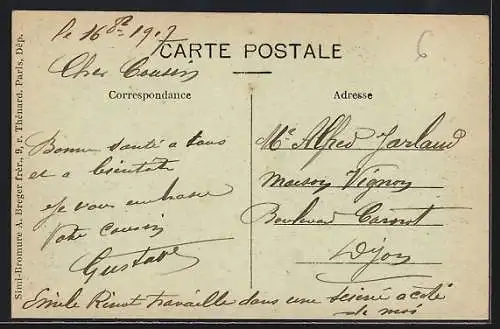 Le 16 8re 1917
6
CARTE POSTALE
Cher Cousin
Correspondance
Adresse
Bonne santé a tous
et a bientôt
Je vous embrasse
Votre cousin
Gustave
Mr Alfred Jarlaud
Maison Vignon
Boulevard Carnot
Dijon
Emile Rinot travaille dans une scierie a coté
de moi
Simi-Bromure A. Breger frèr., 9, r. Thénard, Paris, Dép.